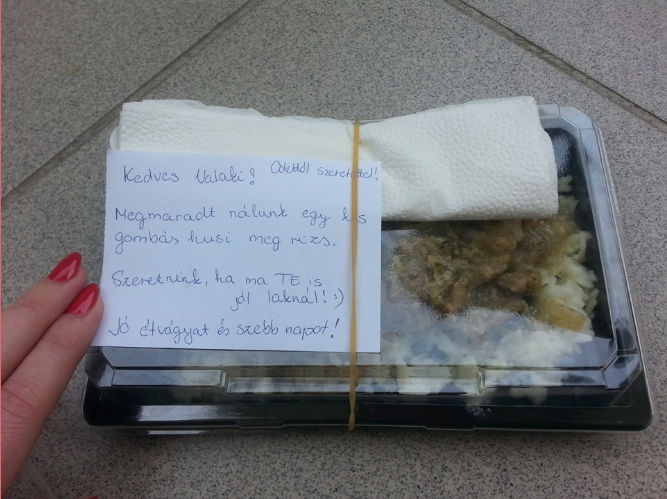 Kedves Valaki!
Odettől szeretettel!
Megmaradt nálunk egy kis
gombás husi meg rizs.
Szeretnénk, ha ma TE is
jól laknál! :)
Jó étvágyat és szebb napot!